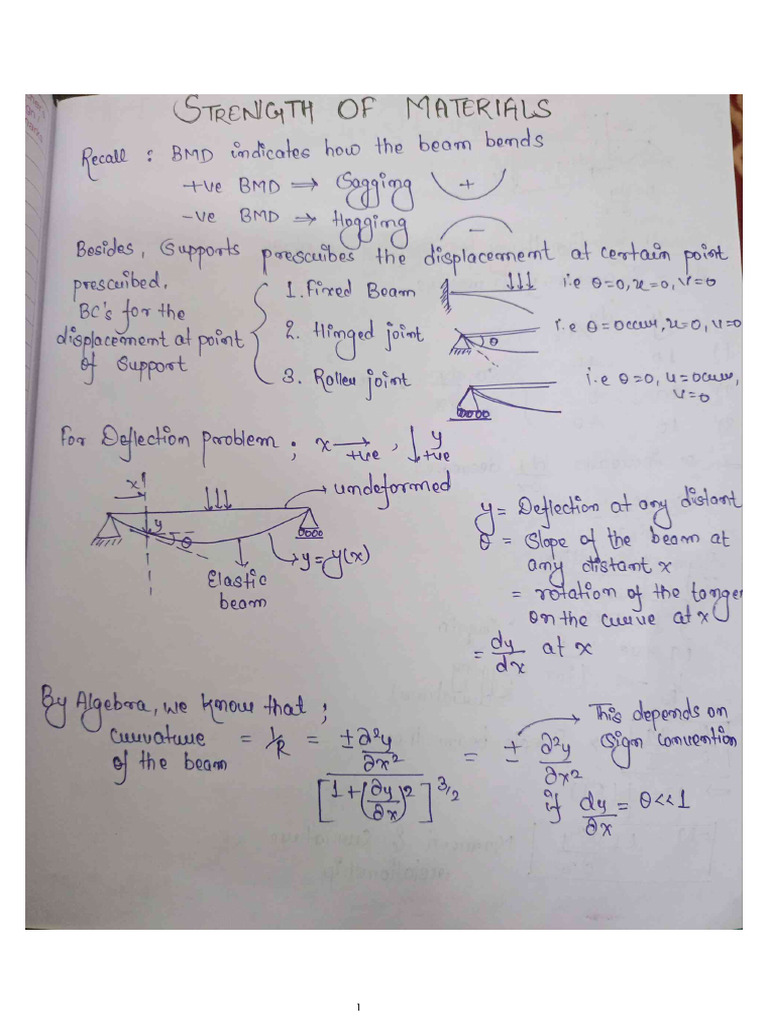 STRENGTH OF MATERIALS
Recall : BMD indicates how the beam bends
+ve BMD ⇒ Sagging +
-ve BMD ⇒ Hogging -
Besides, Supports prescribes the displacement at certain point
prescribed.
BC's for the
displacement at point
of support
1. Fixed Beam i.e θ=0, u=0, v=0
2. Hinged joint θ i.e θ=Occur, u=0, v=0
3. Roller joint i.e θ=0, u=Occur,
v=0
For Deflection problem ; x → +ve , ↓ y +ve
x
undeformed
y
θ
y=y(x)
Elastic
beam
y = Deflection at any distant
θ = Slope of the beam at
any distant x
= rotation of the tange
on the curve at x
= dy/dx at x
By Algebra, we know that ;
curvature = 1/R = ± ∂²y/∂x² / [1+(∂y/∂x)²]^3/2 = ± ∂²y/∂x²
of the beam
This depends on
sign convention
if dy/∂x = θ<<1
1